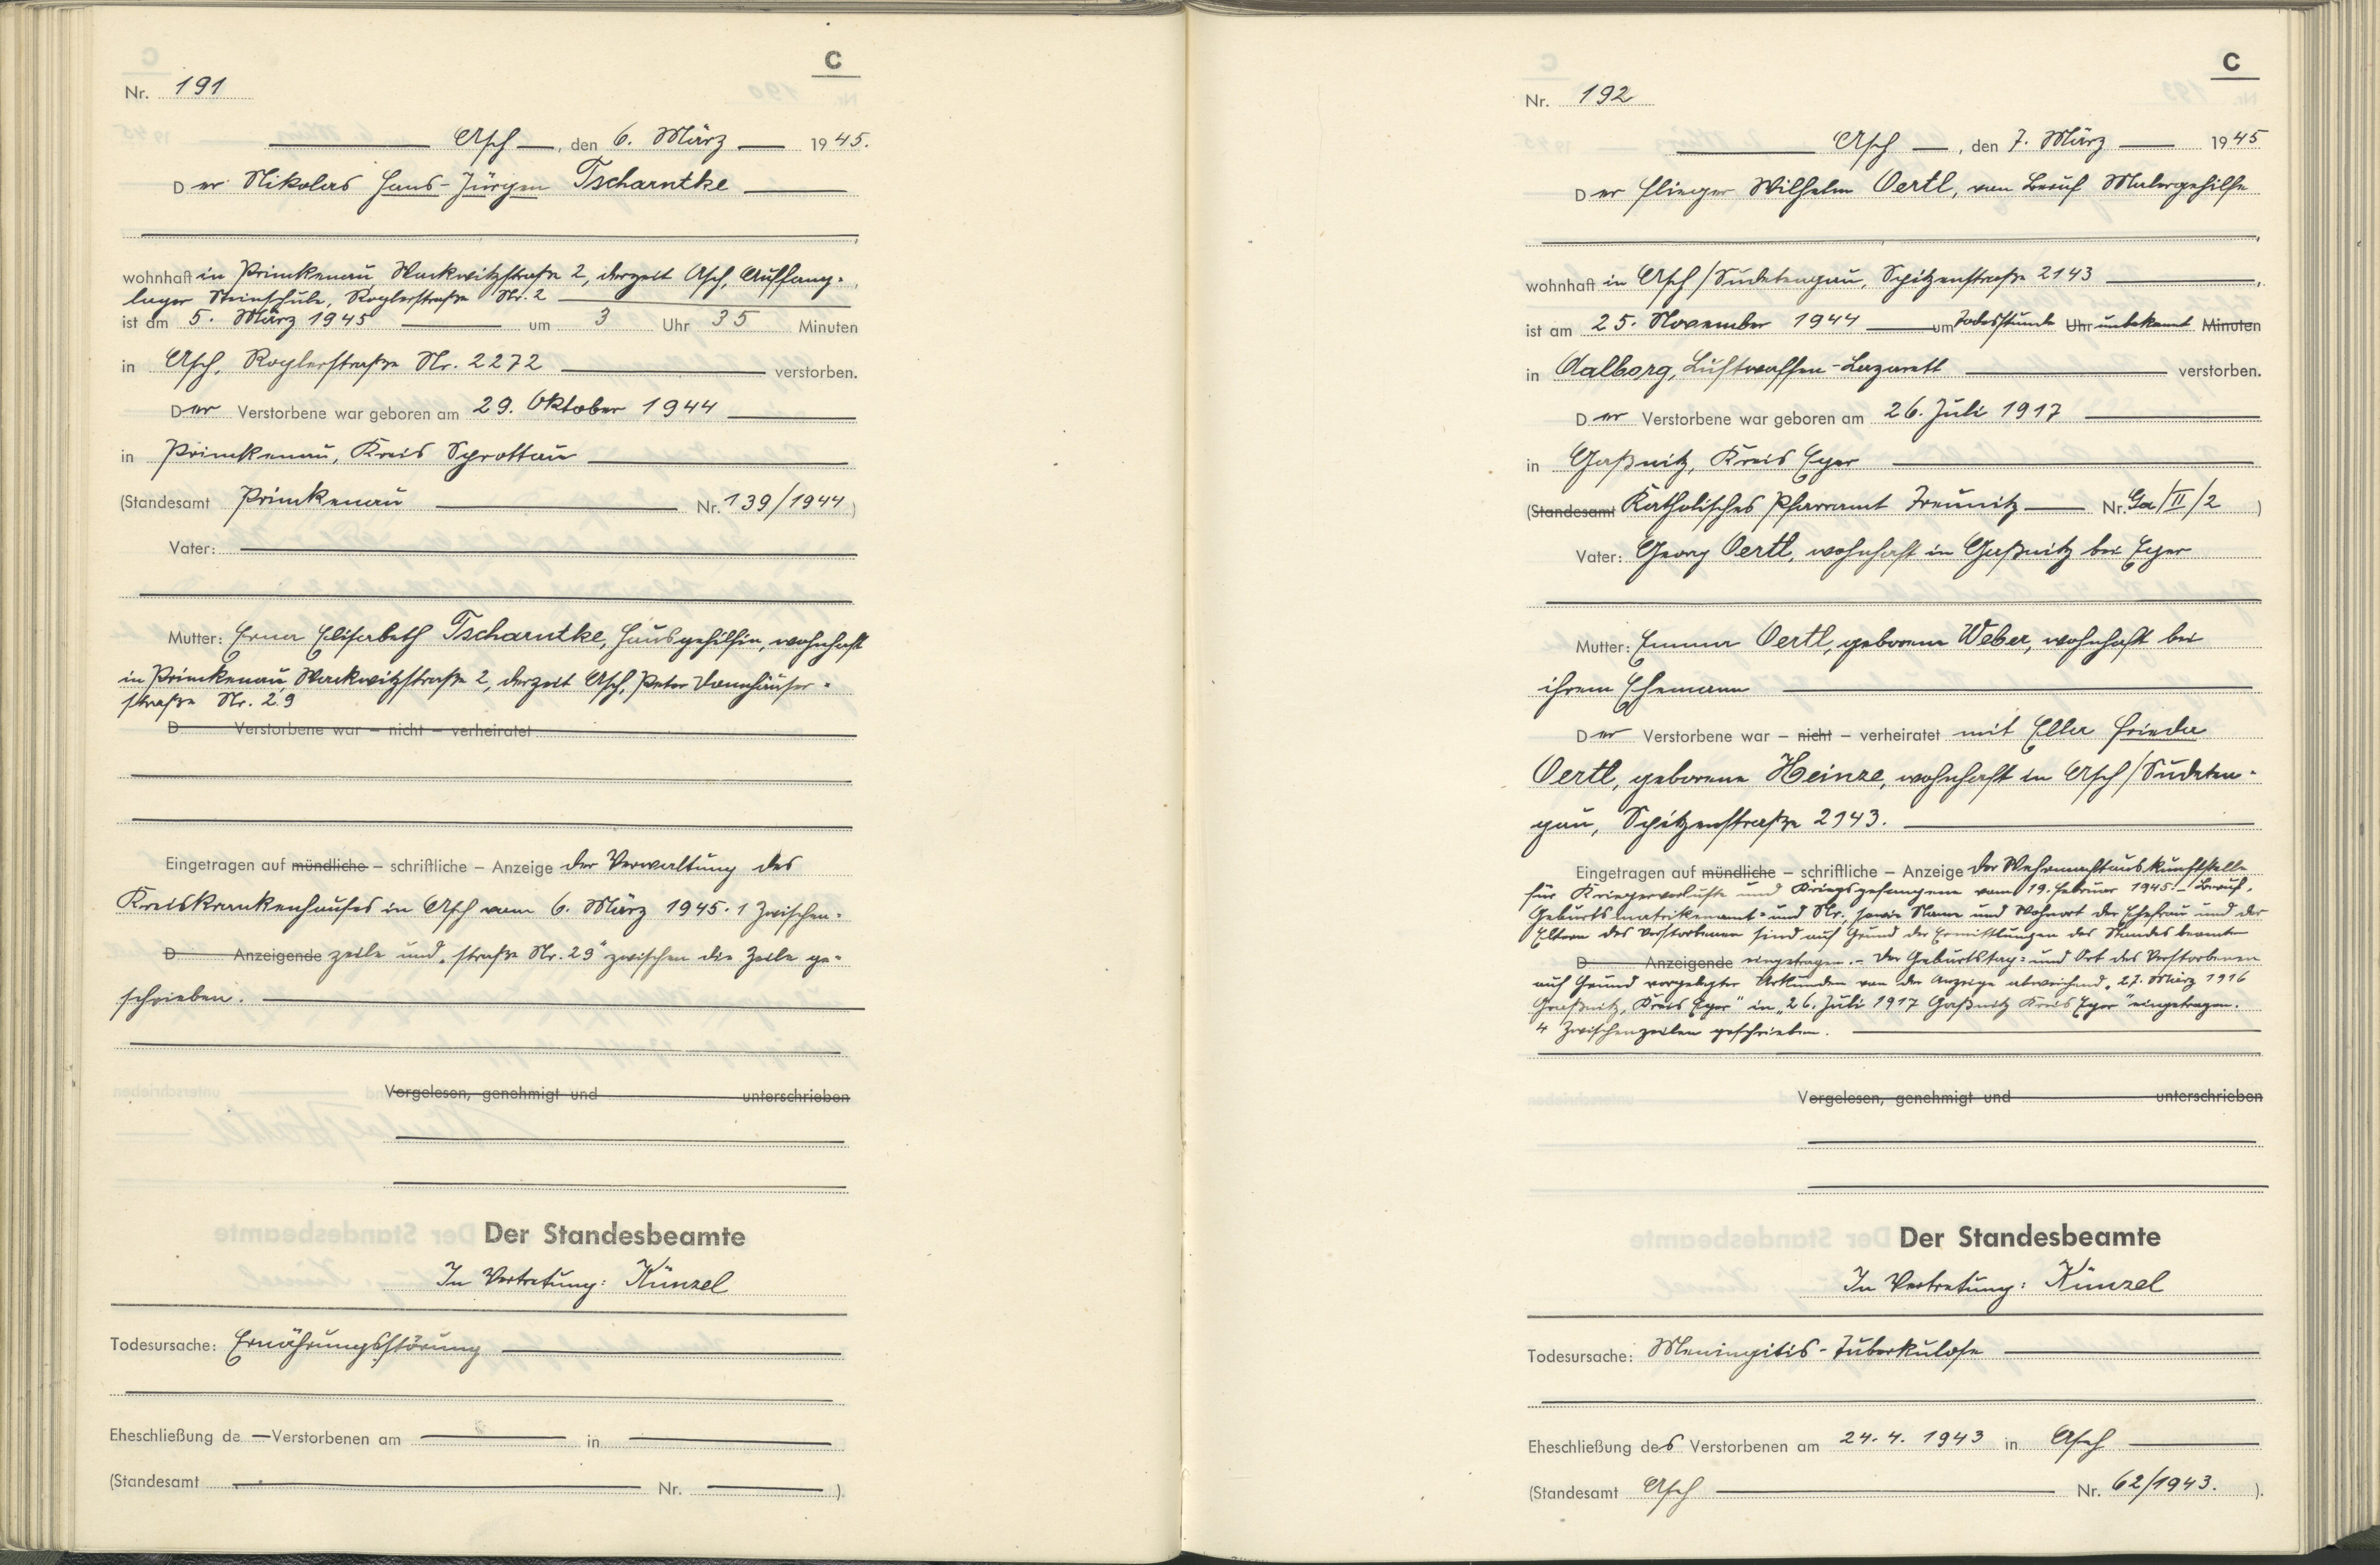 C
Nr. 191
Asch, den 6. März 1945.
Der Nikolas Hans-Jürgen Tscharntke
wohnhaft in Primkenau, Wackwitzstraße 2, derzeit Asch, Auffang-
lager Steinschule, Roglerstraße Nr. 2
ist am 5. März 1945 um 3 Uhr 35 Minuten
in Asch, Roglerstraße Nr. 2272 verstorben.
Der Verstorbene war geboren am 29. Oktober 1944
in Primkenau, Kreis Sprottau
(Standesamt Primkenau Nr. 139/1944)
Vater:
Mutter: Erna Elisabeth Tscharntke, Hausgehilfin, wohnhaft
in Primkenau, Wackwitzstraße 2, derzeit Asch, Peter Donnhäuser-
straße Nr. 29
D Verstorbene war – nicht – verheiratet
Eingetragen auf mündliche – schriftliche – Anzeige der Verwaltung des
Kreiskrankenhauses in Asch vom 6. März 1945. 1 Zwischen-
D Anzeigende zeile und „straße Nr. 29" zwischen die Zeile ge-
schrieben.
Vorgelesen, genehmigt und unterschrieben
Der Standesbeamte
In Vertretung: Künzel
Todesursache: Ernährungsstörung
Eheschließung de Verstorbenen am in
(Standesamt Nr. )
C
Nr. 192
Asch, den 7. März 1945
Der Flieger Wilhelm Oertl, von Beruf Malergehilfe
wohnhaft in Asch/Sudetengau, Spitzenstraße 2143
ist am 25. November 1944 um Todesstunde Uhr unbekannt Minuten
in Aalborg, Luftwaffen-Lazarett verstorben.
Der Verstorbene war geboren am 26. Juli 1917
in Gaßnitz, Kreis Eger
(Standesamt Katholisches Pfarramt Treunitz Nr. Ga/II/2 )
Vater: Georg Oertl, wohnhaft in Gaßnitz bei Eger
Mutter: Emma Oertl, geborene Weber, wohnhaft bei
ihrem Ehemann
Der Verstorbene war – nicht – verheiratet mit Ella Frieda
Oertl, geborene Heinze, wohnhaft in Asch/Sudeten-
gau, Spitzenstraße 2143.
Eingetragen auf mündliche – schriftliche – Anzeige der Wehrmachtauskunftstelle
für Kriegerverluste und Kriegsgefangene vom 19. Februar 1945. – Beruf,
Geburtsmatrikenamt- und Nr., sowie Name und Wohnort der Ehefrau und der
Eltern des Verstorbenen sind auf Grund der Ermittlungen des Standesbeamten
D Anzeigende eingetragen. – Der Geburtstag- und Ort des Verstorbenen
auf Grund vorgelegter Urkunden von der Anzeige abweichend „27. März 1916
Graßnitz, Kreis Eger" in „26. Juli 1917 Gaßnitz Kreis Eger" eingetragen.
4 Zwischenzeilen geschrieben.
Vorgelesen, genehmigt und unterschrieben
Der Standesbeamte
In Vertretung: Künzel
Todesursache: Meningitis-Tuberkulose
Eheschließung des Verstorbenen am 24.4. 1943 in Asch
(Standesamt Asch Nr. 62/1943. ).